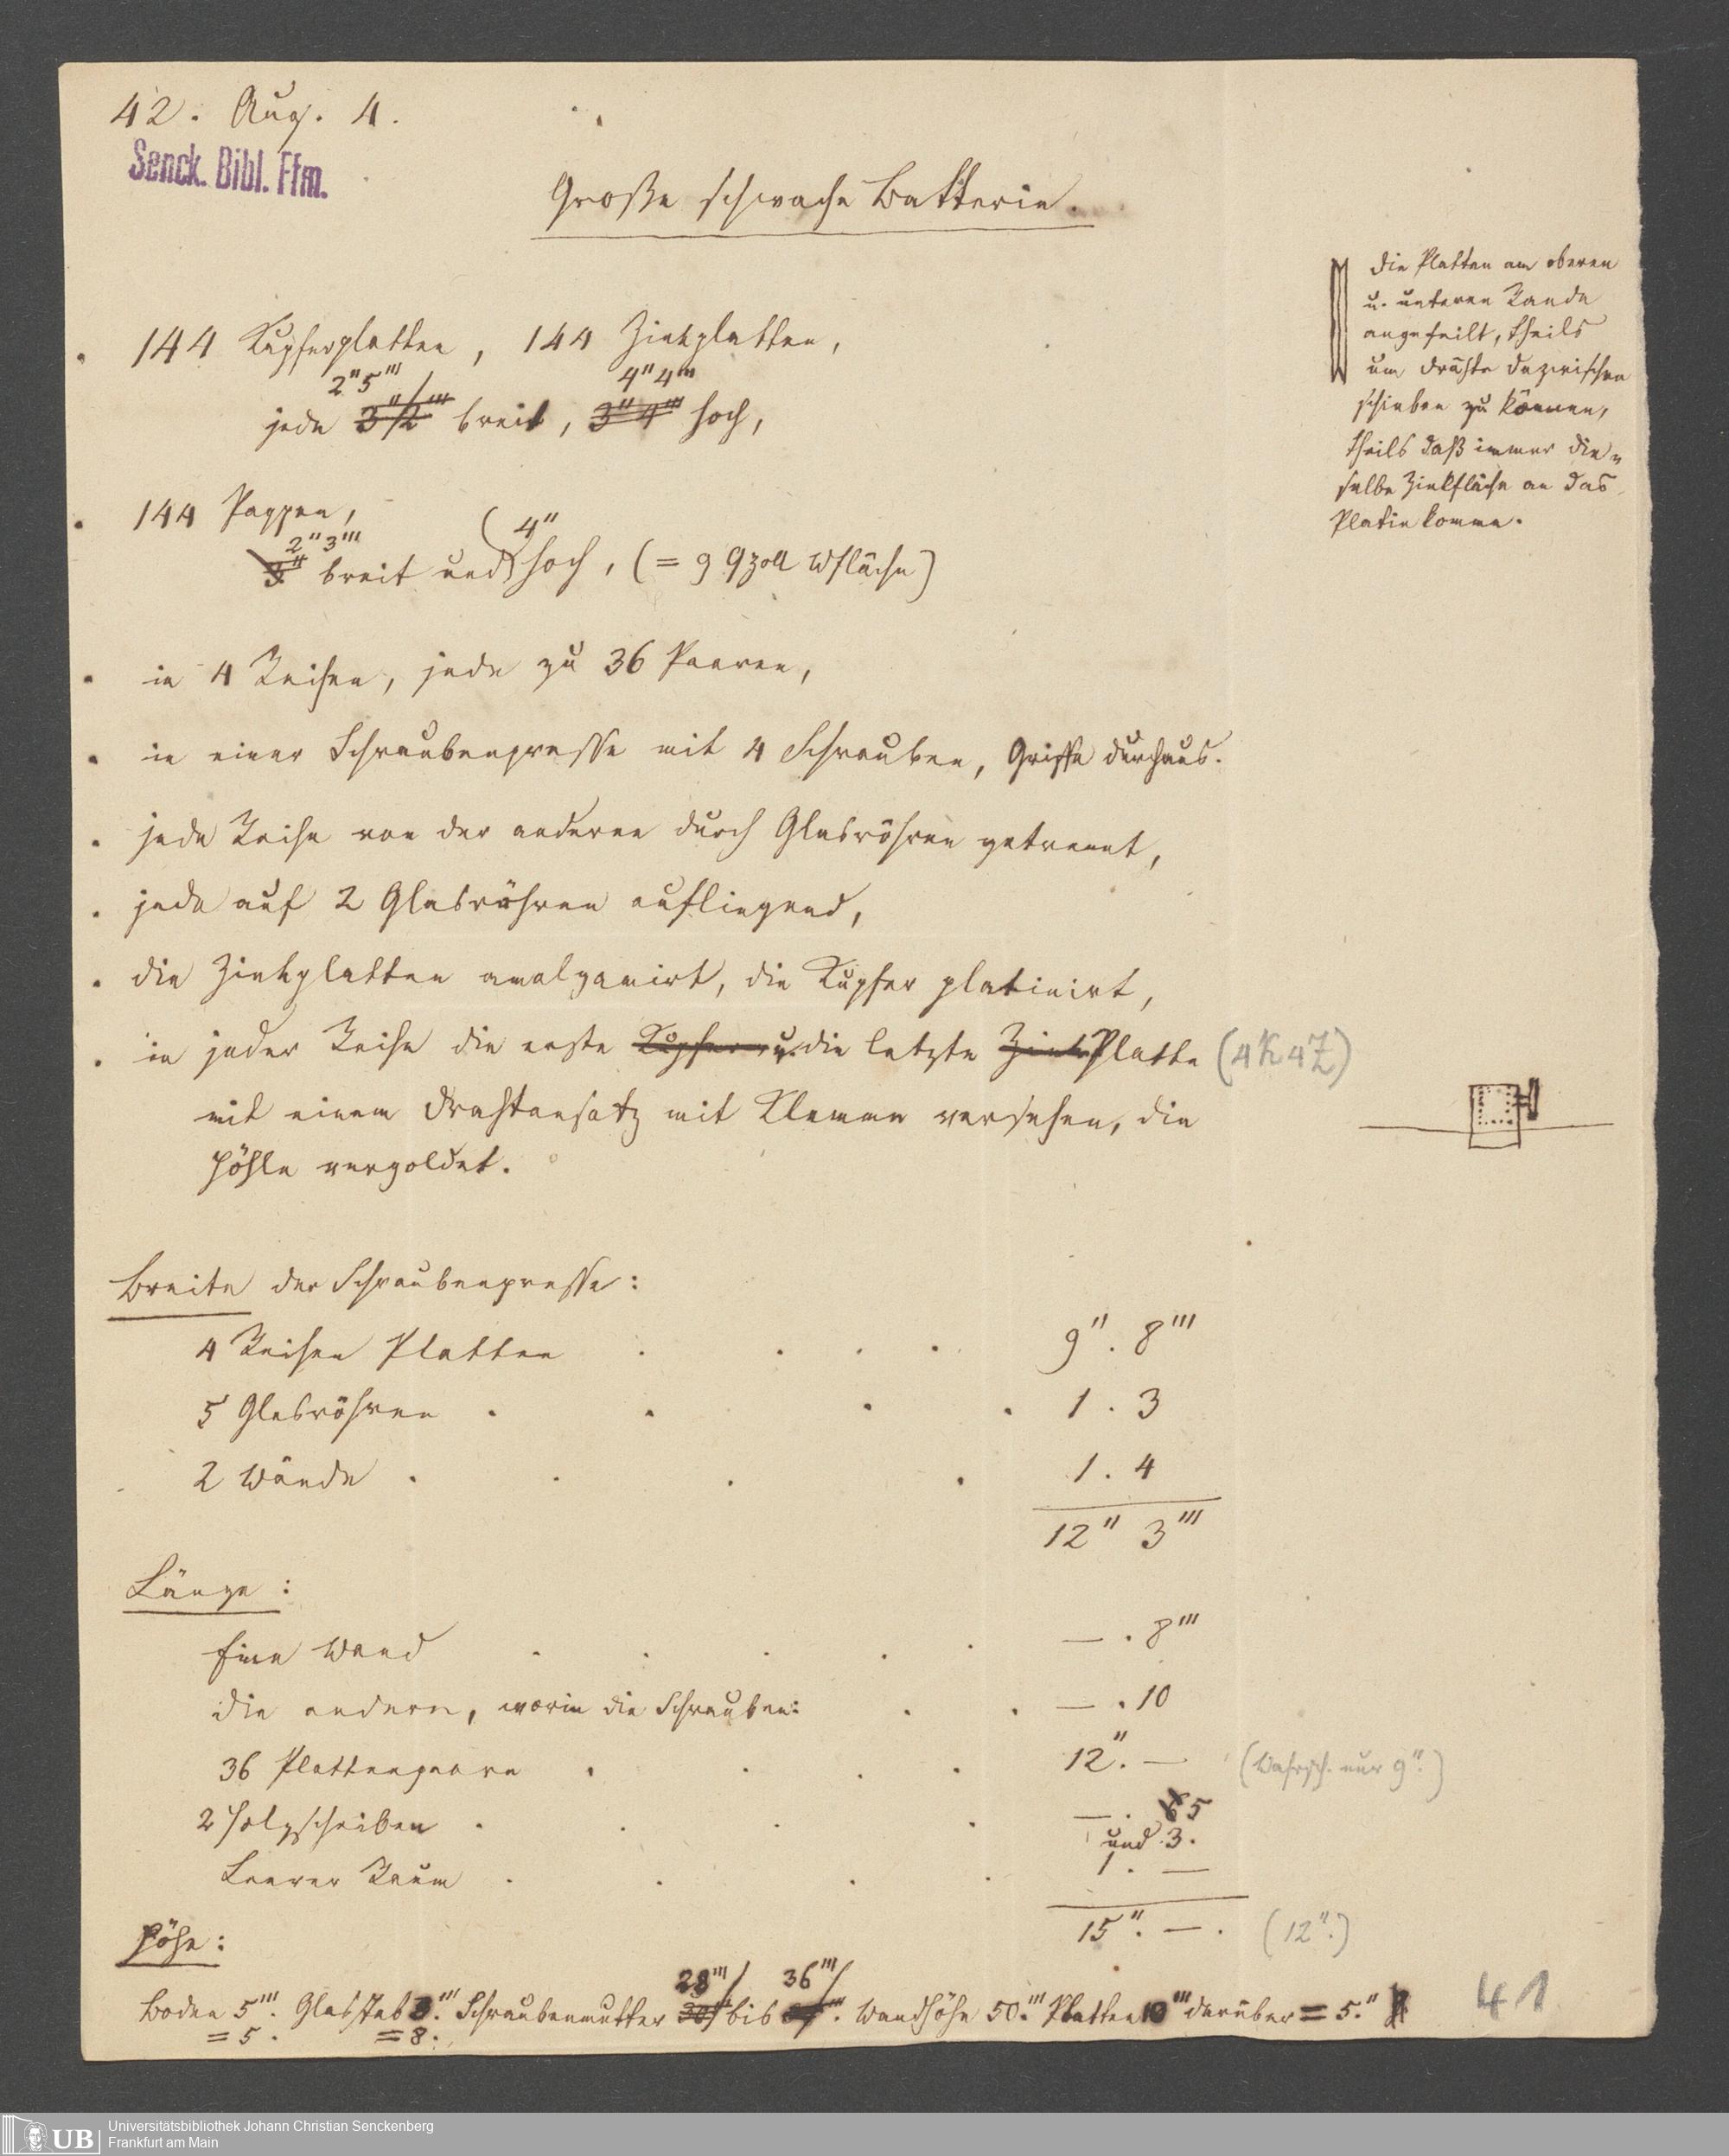 42. Aug. 4.
Senck. Bibl. Ffm.
Große schwache Batterie.
144 Kupferplatten, 144 Zinkplatten,
2" 5"' 4" 4"'
jede 3"/2"' breit, 3" 4"' hoch,
144 Pappen,
2" 3"' 4"
3" breit und hoch, (= 9 Qzoll Wfläche)
in 4 Reihen, jede zu 36 Paaren,
in einer Schraubenpresse mit 4 Schrauben, Griffe durchaus.
jede Reihe von der anderen durch Glasröhren getrennt,
jede auf 2 Glasröhren aufliegend,
die Zinkplatten amalgamirt, die Kupfer platinirt,
in jeder Reihe die erste Kupfer u. die letzte Zink Platte (4K 4Z)
mit einem Drahtansatz mit Klemme versehen, die
Höhle vergoldet.
die Platten am oberen
u. unteren Rande
angefeilt, theils
um Drähte dazwischen
schieben zu können,
theils daß immer die=
selbe Zinkfläche an das
Platin komme.
Breite der Schraubenpresse:
4 Reihen Platten . . . . 9". 8"'
5 Glasröhren . . . . 1 . 3
2 Wände . . . . 1 . 4
12" 3"'
Länge:
Eine Wand . . . . . — . 8"'
die andern, worin die Schrauben: . . — . 10
36 Plattenpaare . . . . 12". — (Wahrsch. nur 9".)
2 Holzscheiben . . . . — . 5
und 3.
Leerer Raum . . . . 1 . —
15". — . (12".)
Höhe:
28"' 36"'
Boden 5"'. Glasstab 3."' Schraubenmutter bis . Wandhöhe 50."' Platten 10"' darüber = 5."
= 5 . = 8.
41
UB Universitätsbibliothek Johann Christian Senckenberg
Frankfurt am Main